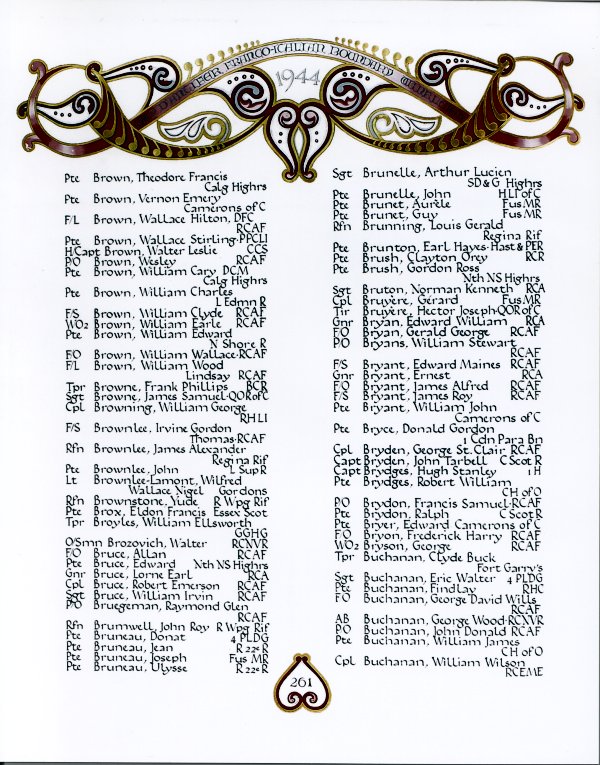 FRANCO-ITALIAN BOUNDARY
1944
Pte Brown, Theodore Francis
Calg Highrs
Pte Brown, Vernon Emery
Camerons of C
F/L Brown, Wallace Hilton, DFC
RCAF
Pte Brown, Wallace Stirling·PPCLI
H/Capt Brown, Walter Leslie CCS
P/O Brown, Wesley RCAF
Pte Brown, William Cary DCM
Calg Highrs
Pte Brown, William Charles
L Edmn R
F/S Brown, William Clyde RCAF
WO2 Brown, William Earle RCAF
Pte Brown, William Edward
N Shore R
F/O Brown, William Wallace·RCAF
F/L Brown, William Wood
Lindsay RCAF
Tpr Browne, Frank Phillips BCR
Sgt Browne, James Samuel·QOR of C
Cpl Browning, William George
RHLI
F/S Brownlee, Irvine Gordon
Thomas·RCAF
Rfn Brownlee, James Alexander
Regina Rif
Pte Brownlee, John L Sup R
Lt Brownlee-Lamont, Wilfred
Wallace Nigel Gordons
Rfn Brownstone, Yude R Wpg Rif
Pte Brox, Eldon Francis Essex Scot
Tpr Broyles, William Ellsworth
GGHG
O/Smn Brozovich, Walter RCNVR
F/O Bruce, Allan RCAF
Pte Bruce, Edward Nth NS Highrs
Gnr Bruce, Lorne Earl RCA
Cpl Bruce, Robert Emerson RCAF
Sgt Bruce, William Irvin RCAF
P/O Bruegeman, Raymond Glen
RCAF
Rfn Brumwell, John Roy R Wpg Rif
Pte Bruneau, Donat 4 PLDG
Pte Bruneau, Jean R 22e R
Pte Bruneau, Joseph Fus MR
Pte Bruneau, Ulysse R 22e R
Sgt Brunelle, Arthur Lucien
SD&G Highrs
Pte Brunelle, John HLI of C
Pte Brunet, Aurèle Fus MR
Pte Brunet, Guy Fus MR
Rfn Brunning, Louis Gerald
Regina Rif
Pte Brunton, Earl Hayes·Hast & PER
Pte Brush, Clayton Orey RCR
Pte Brush, Gordon Ross
Nth NS Highrs
Sgt Bruton, Norman Kenneth RCA
Cpl Bruyère, Gérard Fus MR
Tir Bruyère, Hector Joseph·QOR of C
Gnr Bryan, Edward William RCA
F/O Bryan, Gerald George RCAF
P/O Bryans, William Stewart
RCAF
F/S Bryant, Edward Maines RCAF
Gnr Bryant, Ernest RCA
F/O Bryant, James Alfred RCAF
F/S Bryant, James Roy RCAF
Pte Bryant, William John
Camerons of C
Pte Bryce, Donald Gordon
1 Cdn Para Bn
Cpl Bryden, George St. Clair RCAF
Capt Bryden, John Tarbell C Scot R
Capt Brydges, Hugh Stanley 1 H
Pte Brydges, Robert William
CH of O
P/O Brydon, Francis Samuel·RCAF
Pte Brydon, Ralph C Scot R
Pte Bryer, Edward Camerons of C
F/O Bryon, Frederick Harry RCAF
WO2 Bryson, George RCAF
Tpr Buchanan, Clyde Buck
Fort Garry's
Sgt Buchanan, Eric Walter 4 PLDG
Pte Buchanan, Findlay RHC
F/O Buchanan, George David Wills
RCAF
AB Buchanan, George Wood·RCNVR
P/O Buchanan, John Donald RCAF
Pte Buchanan, William James
CH of O
Cpl Buchanan, William Wilson
RCEME
261